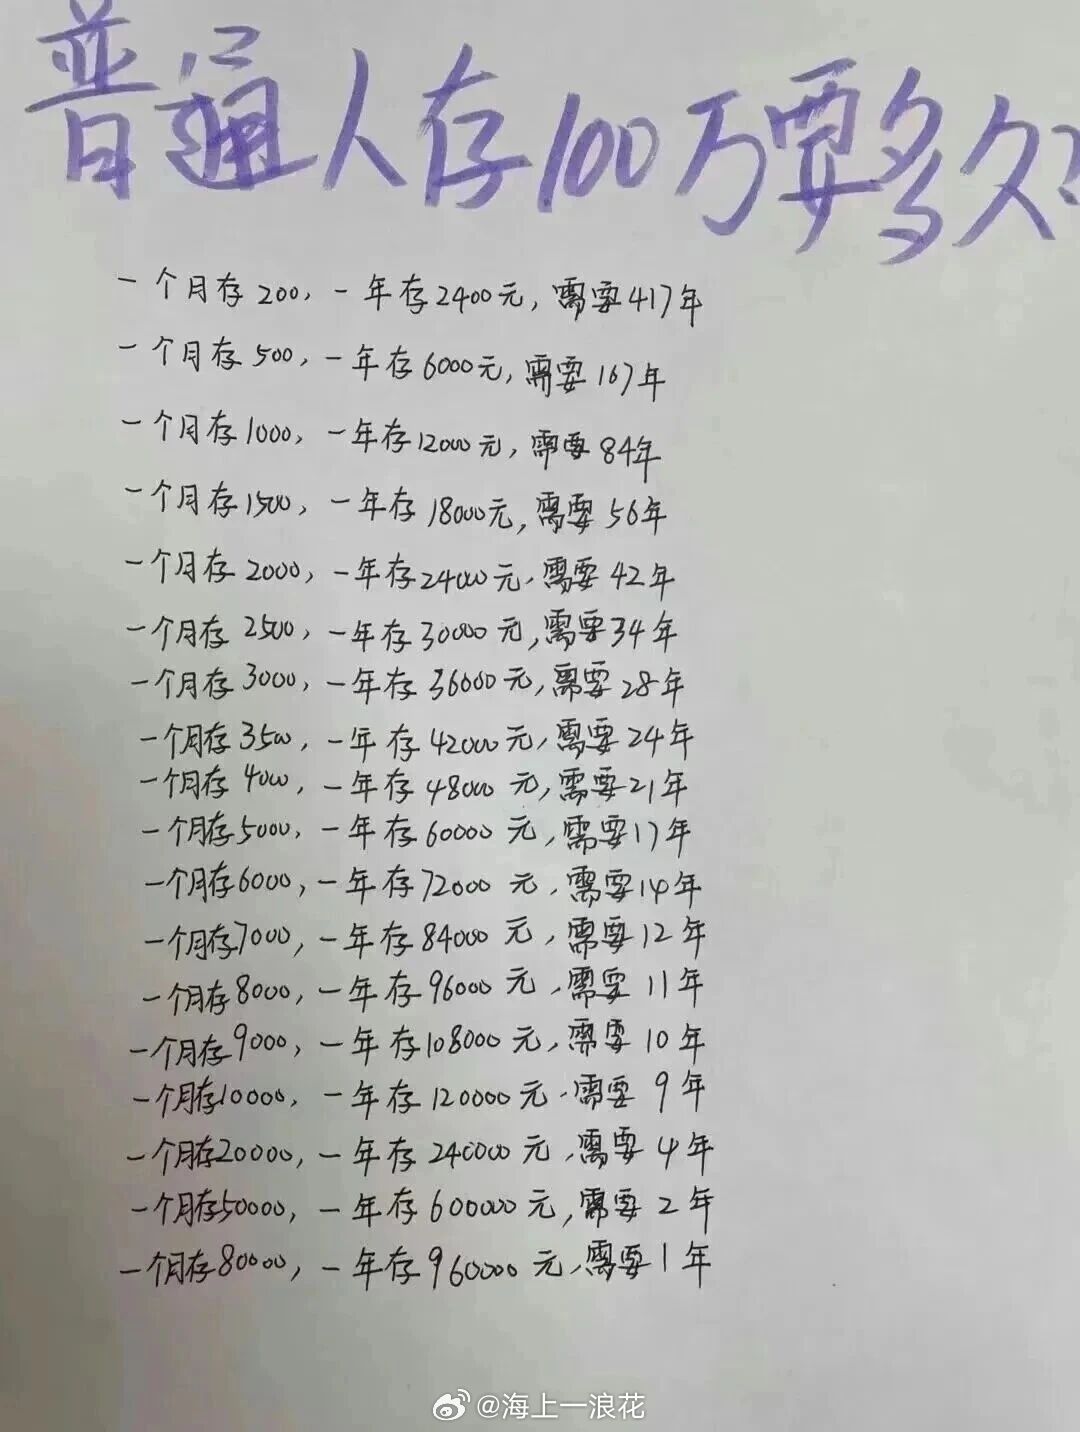 普通人存100万要多久?
一个月存200,一年存2400元,需要417年
一个月存500,一年存6000元,需要167年
一个月存1000,一年存12000元,需要84年
一个月存1500,一年存18000元,需要56年
一个月存2000,一年存24000元,需要42年
一个月存2500,一年存30000元,需要34年
一个月存3000,一年存36000元,需要28年
一个月存3500,一年存42000元,需要24年
一个月存4000,一年存48000元,需要21年
一个月存5000,一年存60000元,需要17年
一个月存6000,一年存72000元,需要14年
一个月存7000,一年存84000元,需要12年
一个月存8000,一年存96000元,需要11年
一个月存9000,一年存108000元,需要10年
一个月存10000,一年存120000元,需要9年
一个月存20000,一年存240000元,需要4年
一个月存50000,一年存600000元,需要2年
一个月存80000,一年存960000元,需要1年
@海上一浪花